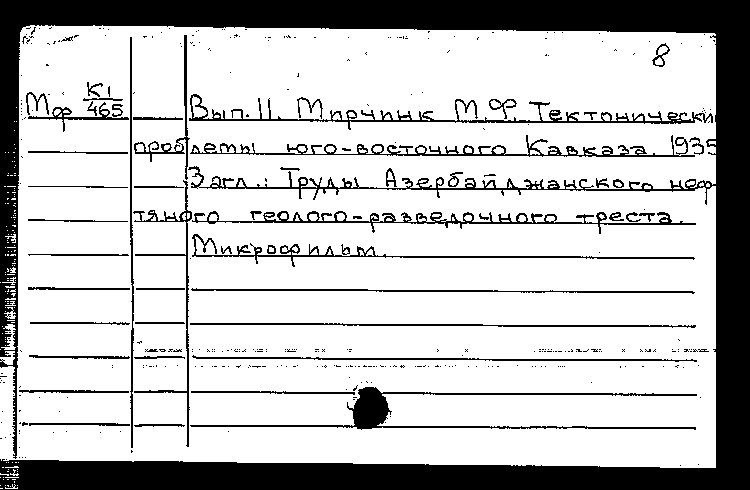 8
Мф К1/465
Вып. 11. Мирчинк М.Ф. Тектонически
проблемы юго-восточного Кавказа. 1935
Загл.: Труды Азербайджанского неф-
тяного геолого-разведочного треста.
Микрофильм.